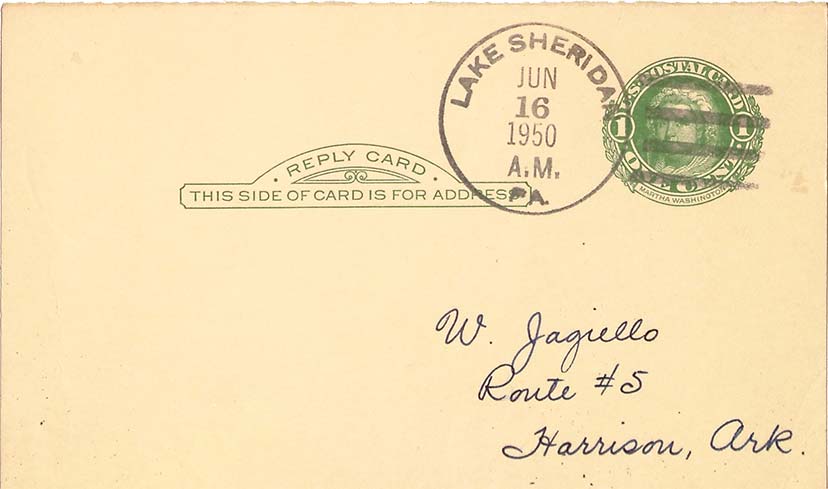 LAKE SHERIDAN
JUN
16
1950
A.M.
PA.
U.S. POSTAL CARD
1 1
ONE CENT
MARTHA WASHINGTON
· REPLY CARD ·
THIS SIDE OF CARD IS FOR ADDRESS
W. Jagiello
Route #5
Harrison, Ark.